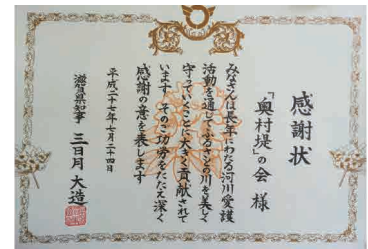 感謝状
「奥村堤」の会 様
みなさんは長年にわたる河川愛護
活動を通してふるさとの川を美しく
守っていくことに大きく貢献されて
います そのご功労をたたえ深く
感謝の意を表します
平成二十七年七月二十四日
滋賀県知事 三日月 大造